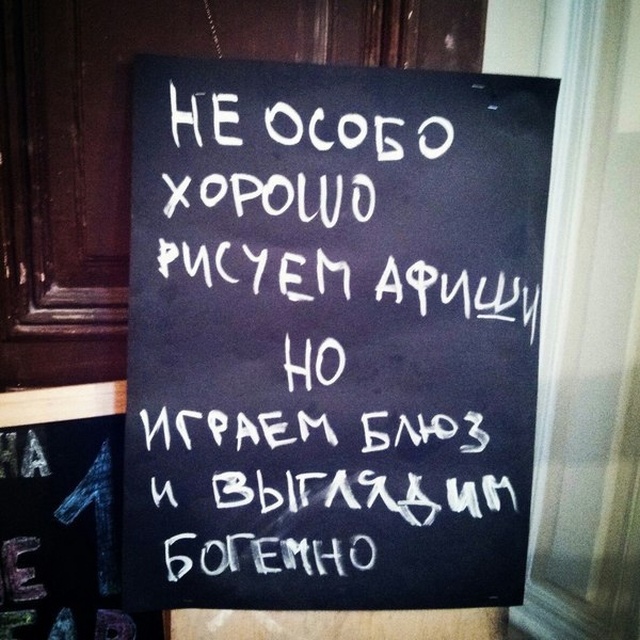 НЕ ОСОБО
ХОРОШО
РИСУЕМ АФИШИ
НО
ИГРАЕМ БЛЮЗ
И ВЫГЛЯДИМ
БОГЕМНО
НА
1